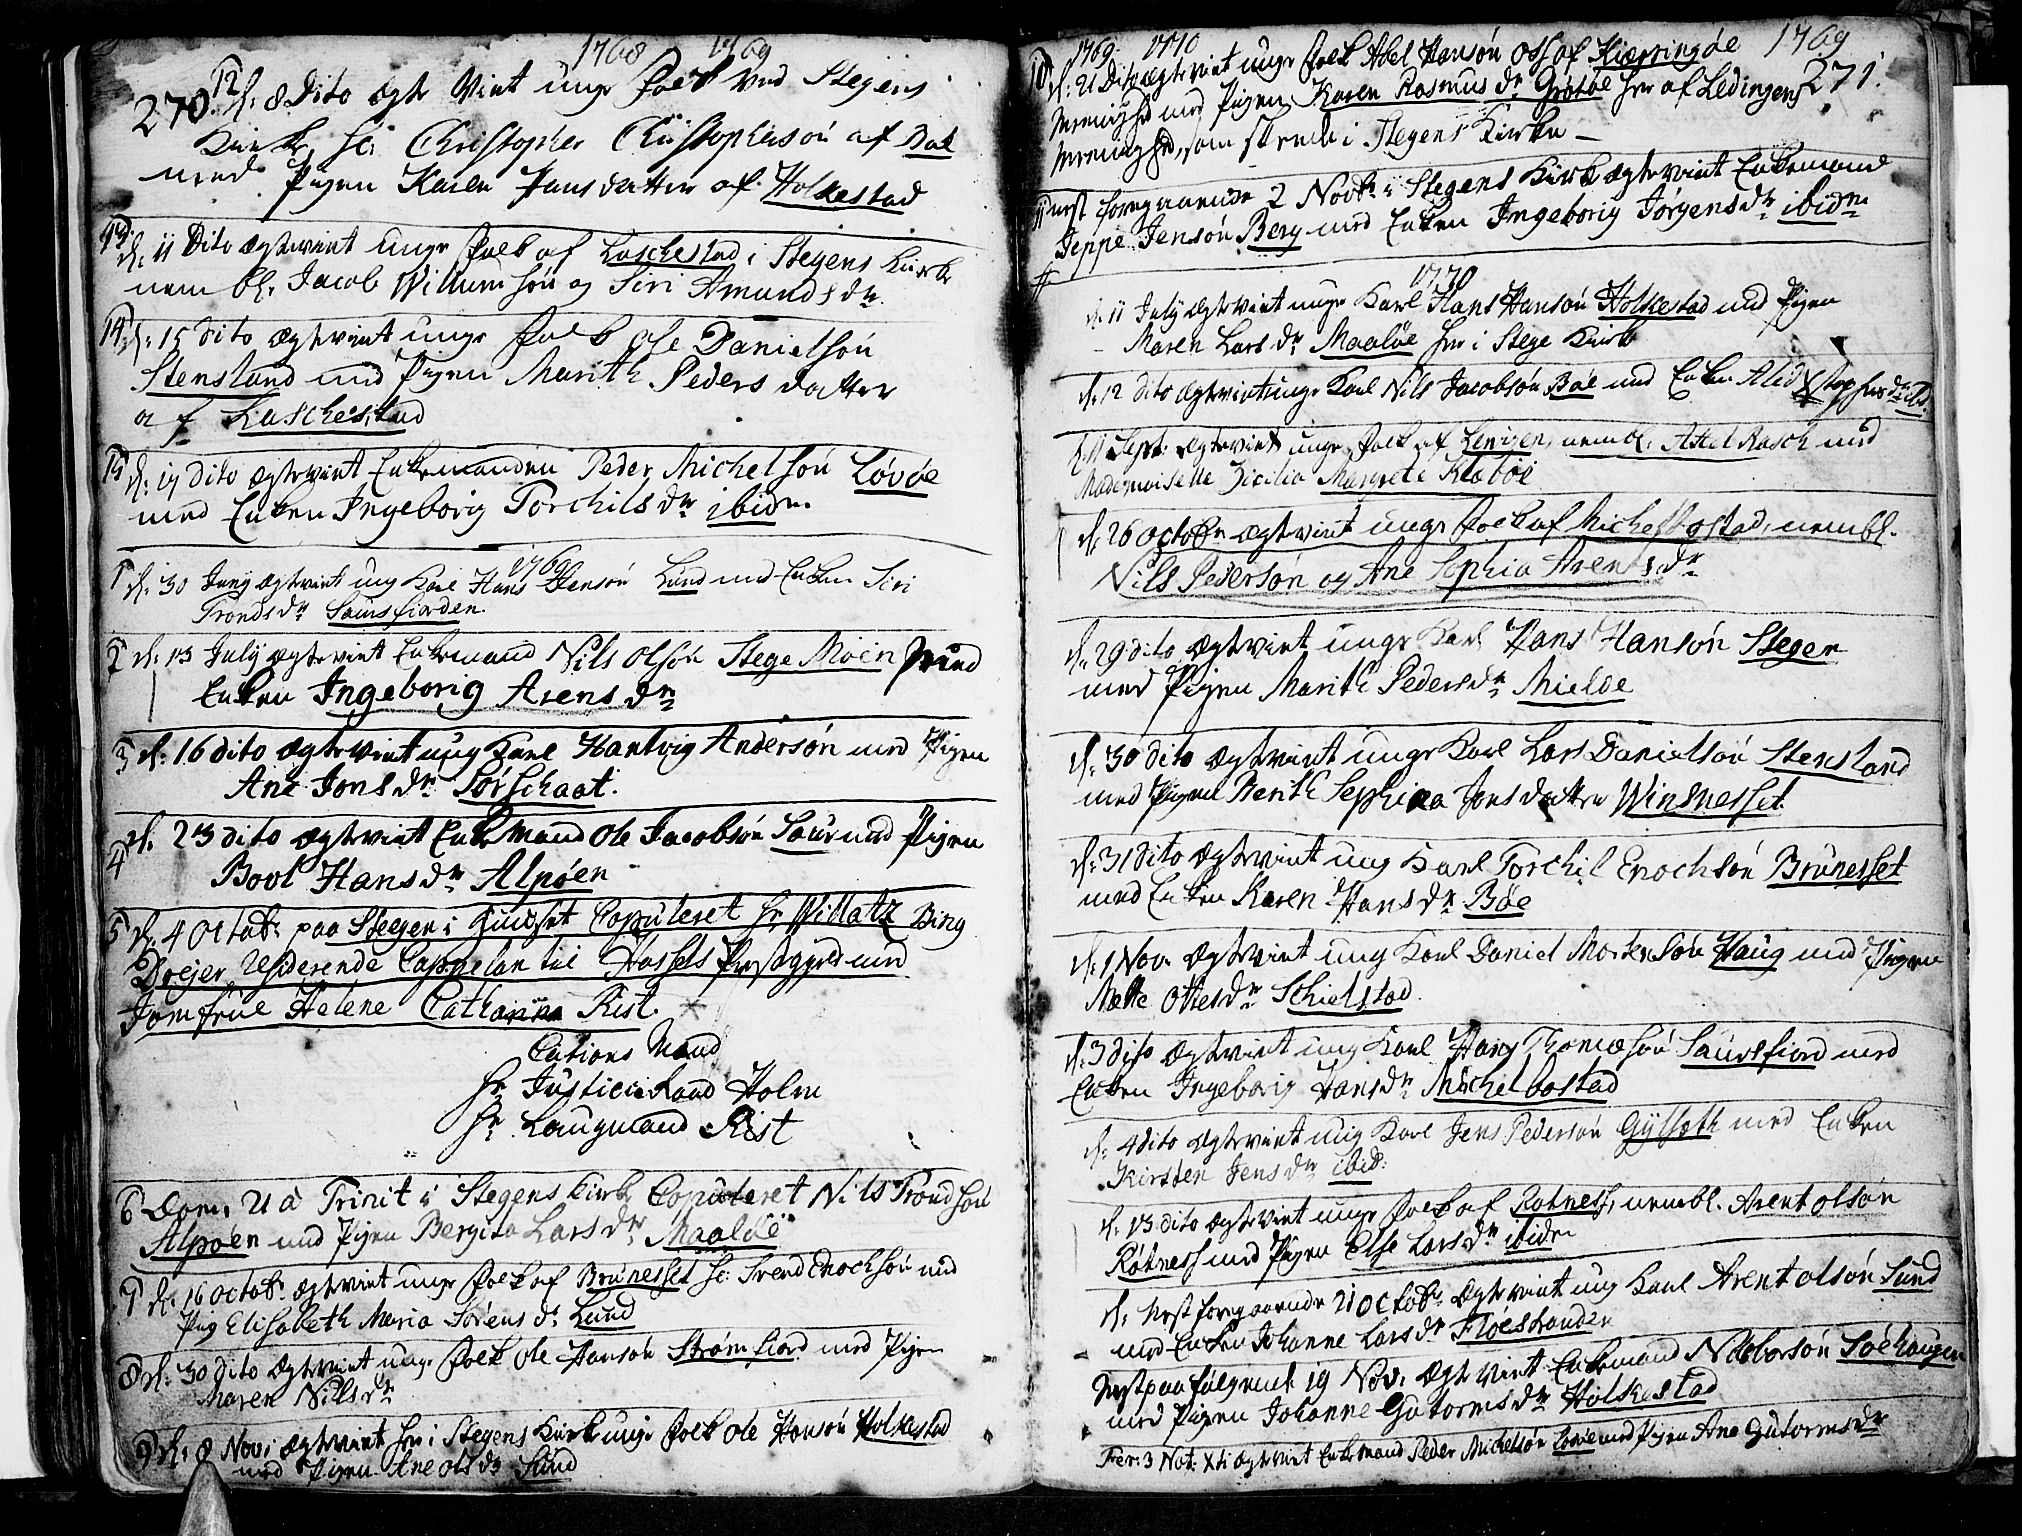 1768 1769
270. 12 d: 8 Dito Ægte Viet unge Folk ved Stegens
Kirke, sc: Christopher Christophersøn af Bøe
med Pigen Karen Jansdatter af Holkestad
13. d: 11 Dito Ægteviet unge Folk af Laschestad i Stegens Kirke
nembl. Jacob Willumsøn og Siri Amunds dr
14. d: 15 dito Ægteviet unge Folk Ole Danielsøn
Stensland med Pigen Marith Peders datter
af Laschestad
15 d: 17 dito Ægteviet Enkemanden Peder Michelsøn Løvøe
med Enken Ingeborig Torchils dr ibidm
1769
1 d: 30 Juny Ægteviet ung Karl Hans Jensøn Lund med Enken Siri
Tronds dr Saursfiorden
2 d: 13 July Ægteviet Enkemand Nils Olsøn Stege Moen med
Enken Ingeborig Arens dr
3 d: 16 dito Ægteviet ung Karl Hartvig Andersøn med Pigen
Ane Jons dr Sørschaat.
4 d: 23 dito Ægteviet Enkemand Ole Jacobsøn Saur med Pigen
Bovl Hans dr Alpøen
5 d. 4 Octob: paa Stegen i Huuset Copuleret hr Willatz Bing
Drejer Residerende Cappelan til Hassels Præstegield med
Jomfrue Helene Catharina Rist.
Cautions Mænd
hr Justice Raad Holm
hr Laugmand Rist
6 Dom: 21 a Trinit i Stegens Kirke Copuleret Nils Trondsøn
Alpøen med Pigen Bergita Lars dr Maaløe
7 d: 16 Octob: Ægteviet unge Folk af Brunesset sc: Svend Enochsøn med
Pig Elisabeth Maria Sørens dr Lund
8 d: 30 dito Ægteviet unge Folk Ole Hansøn Strømfiord med Pigen
Maren Nils dr
9 d: 8 Nov: Ægteviet her i Stegens Kirke unge Folk Ole Hansøn Holkestad
med Pigen Ane Ols dr Sund
1769 1770 1769
10 d: 21 Dito Ægteviet unge Folk Abel Hansøn Oss af Kierringøe 271.
Menighed med Pigen Karen Rasmus dr Grøtøe her af Ledingens
Menighed, som skeede i Stegens Kirke
11 nest foregaaende 2 Novb: i Stegens Kirke Ægteviet Enkemand
Jeppe Jensøn Berg med Enken Ingeborig Jørgens dr ibidm
1770
d: 11 July Ægteviet unge Karl Hans Hansøn Holkestad med Pigen
Maren Lars dr Maaløe her i Stege Kirke
d: 12 dito Ægteviet unge Karl Nils Jacobsøn Bøe med Enken Alid Xstophers dr ibd.
d: 11 Sept: Ægteviet unge Folk af Lenigen, nembl. Attel Rasch med
Mademoiselle Zicilia Margrete Klæbøe
d: 26 Octobr Ægteviet unge Folk af Michelbostad, nembl.
Nils Pedersøn og Ane Sophia Arents dr
d: 29 dito Ægteviet unge Karl Hans Hansøn Stegen
med Pigen Marith Peders dr Mielde
d: 30 dito Ægteviet unge Karl Lars Danielsøn Stensland
med Pigen Berith Sephina Jonsdatter Winsnesset
d: 31 dito Ægteviet ung Karl Torchil Enochsøn Brunesset
med Enken Karen Hans dr Bøe
d. 1 Nov: Ægteviet ung Karl Daniel Mortensøn Haug med Pigen
Mette Ottes dr Schielstad
d: 3 dito Ægteviet ung Karl Hans Thomæsøn Saursfiord med
Enken Ingeborig Hans dr Michelbostad
d: 4 dito Ægteviet ung Karl Jens Pedersøn Gylseth med Enken
Kirsten Jens dr ibid:
d. 13 dito Ægteviet unge Folk af Rotness, nembl. Arent Olsøn
Røtness med Pigen Else Lars dr ibidm
d: Nest foregaaende 21 Octob: Ægteviet ung Karl Arent Olsøn Sund
med Enken Johanne Lars dr Fløestranden
Nest paafølgende 19 Nov: Ægteviet Enkemand Nils Larsøn Søehaugen
med Pigen Johanne Gutorms dr Holkestad
Fer: 3 Nat: Xti Ægteviet Enkemand Peder Michelsøn Løvøe med Pigen Ane Gutorms dr